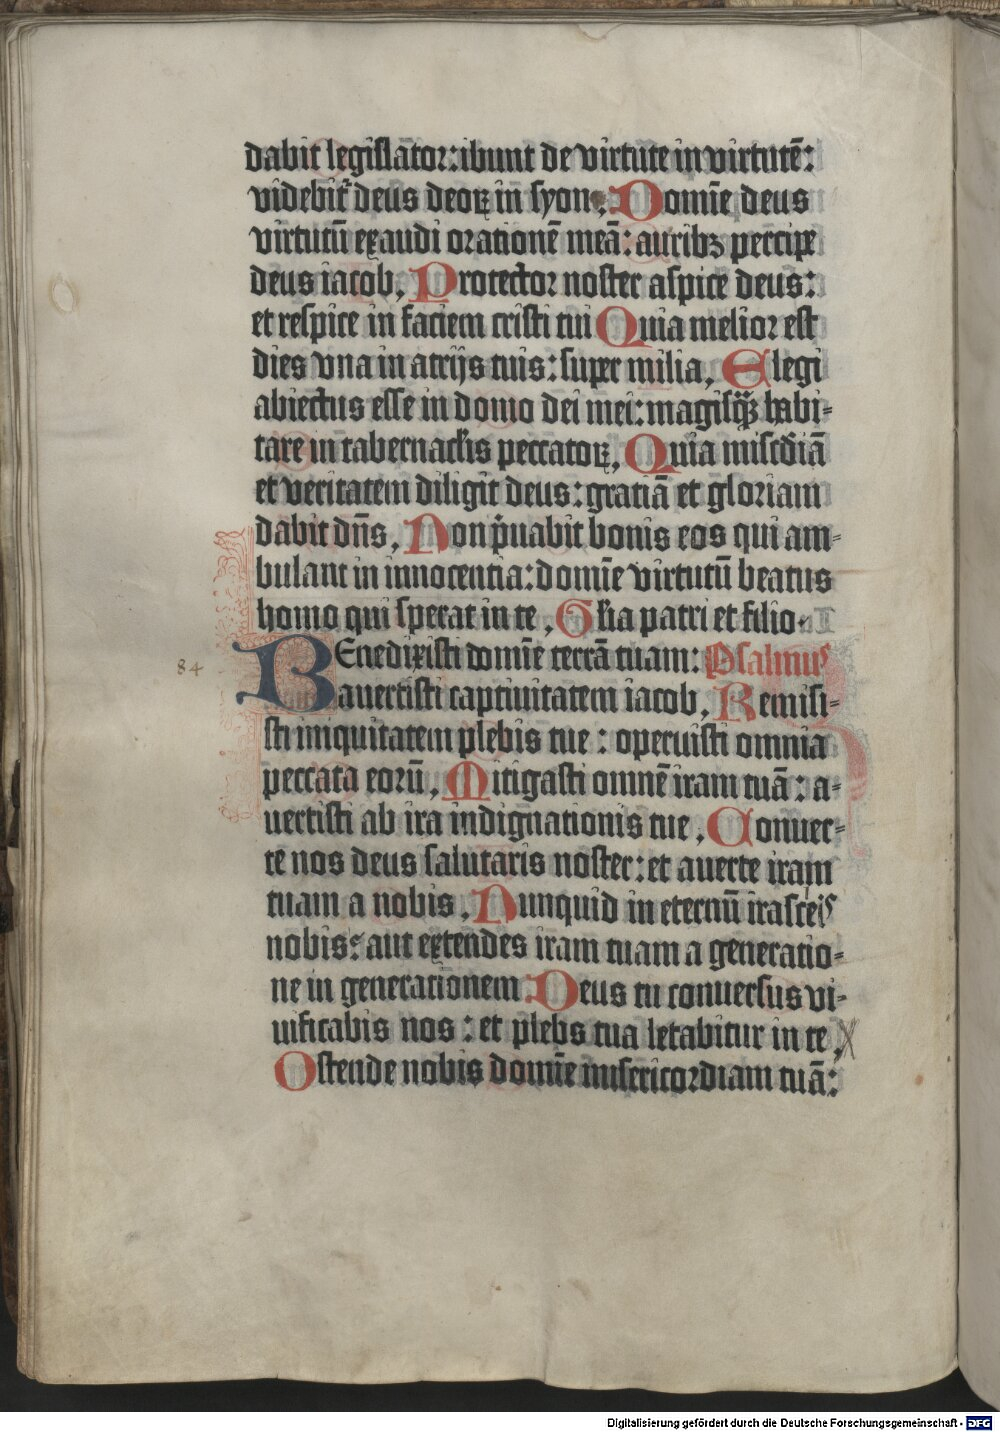 dabit legislator: ibunt de virtute in virtutē:
videbit᷑ deus deoꝝ in syon. Domīe deus
virtutū exaudi orationē meā: auribꝫ percipe
deus iacob. Protector noster aspice deus:
et respice in faciem cristi tui Quia melior est
dies vna in atrijs tuis: super milia. Elegi
abiectus esse in domo dei mei: magisq̄ꝫ habi-
tare in tabernacl̄is peccatoꝝ. Quia miscd̄iā
et veritatem diligit deus: gratiā et gloriam
dabit dn̄s. Non p̄uabit bonis eos qui am-
bulant in innocentia: domīe virtutū beatus
homo qui sperat in te. Gl̄ia patri et filio.
84
BEnedixisti domīe terrā tuam: Psalmus
auertisti captiuitatem iacob. Remisi-
sti iniquitatem plebis tue: operuisti omnia
peccata eorū. Mitigasti omnē iram tuā: a-
uertisti ab ira indignationis tue. Conuer-
te nos deus salutaris noster: et auerte iram
tuam a nobis. Nunquid in eternū irasceis
nobis: aut extendes iram tuam a generatio-
ne in generationem Deus tu conuersus vi-
uificabis nos: et plebs tua letabitur in te.
Ostende nobis domīe misericordiam tuā:
Digitalisierung gefördert durch die Deutsche Forschungsgemeinschaft - DFG